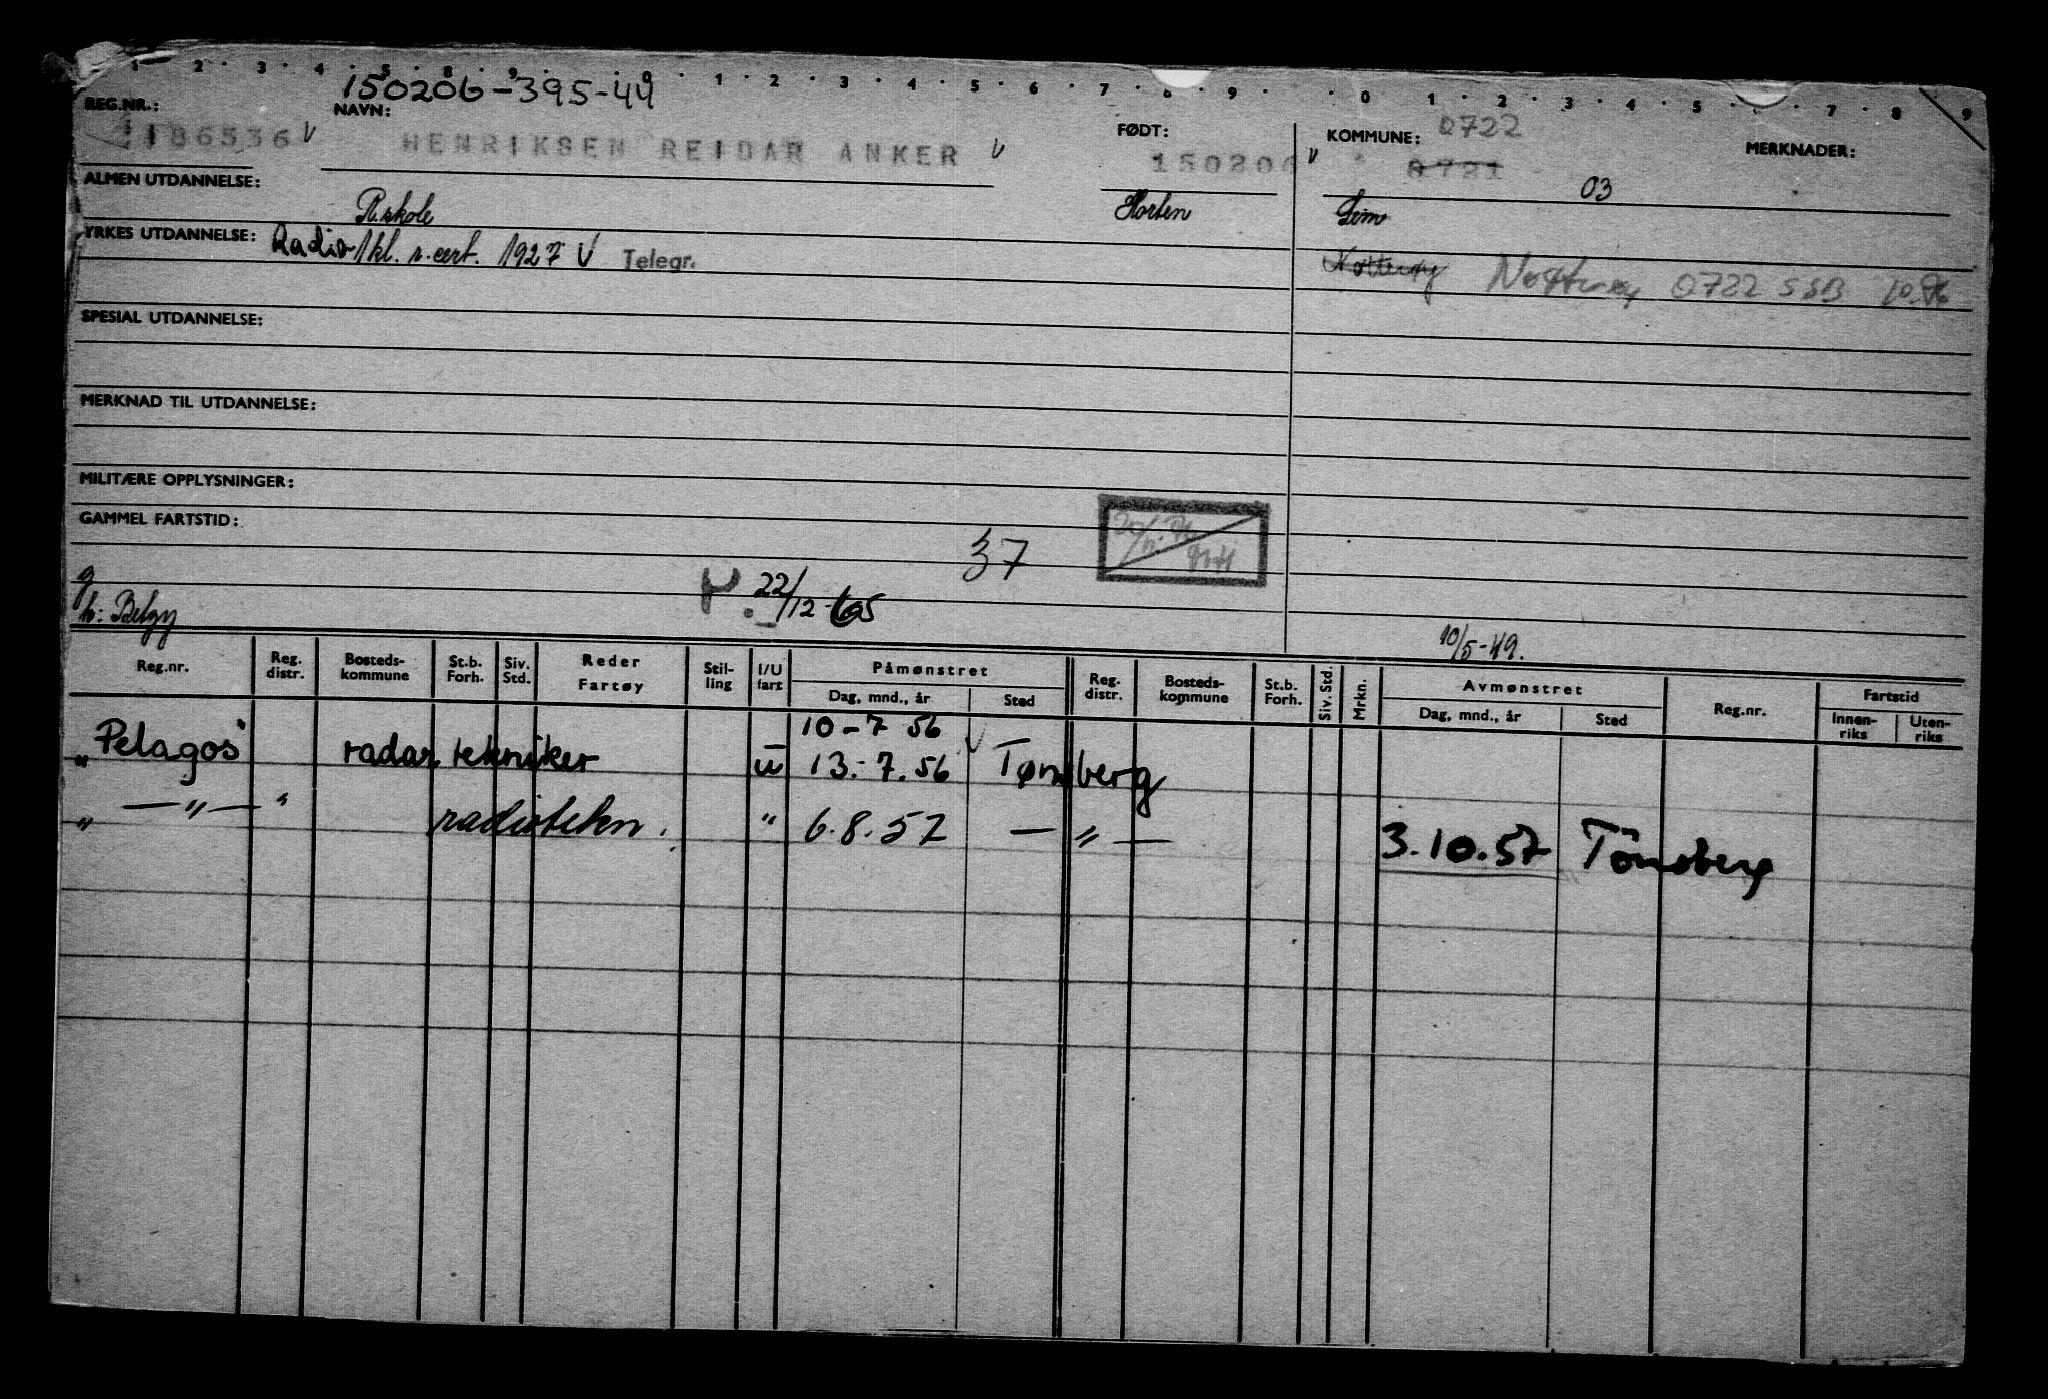 1 2 3 4 5 8 9 0 1 2 3 4 5 6 7 8 9 0 1 2 3 4 5 7 8 9
150206-395-44
REG.NR.: NAVN: FØDT: KOMMUNE: 0722 MERKNADER:
186536 V HENRIKSEN REIDAR ANKER V 150206 V 0721
ALMEN UTDANNELSE: 03
R.skole Horten Sem
YRKES UTDANNELSE: Radio 1kl. r.cert. 1927 V Telegr.
Nøtterøy Nøtterøy 0722 SSB
SPESIAL UTDANNELSE:
MERKNAD TIL UTDANNELSE:
MILITÆRE OPPLYSNINGER:
GAMMEL FARTSTID:
37
22/12-65
h: Betzy
10/5-49.
Reg.nr. Reg. distr. Bosteds-kommune St.b. Forh. Siv. Std. Reder Fartøy Stil-ling I/U fart Påmønstret Dag, mnd., år Sted Reg. distr. Bosteds-kommune St.b. Forh. Siv. Std. Mrkn. Avmønstret Dag, mnd., år Sted Reg.nr. Fartstid Innen-riks Uten-riks
10-7 56 V
"Pelagos" radar tekniker u 13.-7.56 Tønsberg
" — " — " radiotekn. " 6.8.57 — " — 3.10.57 Tönsberg